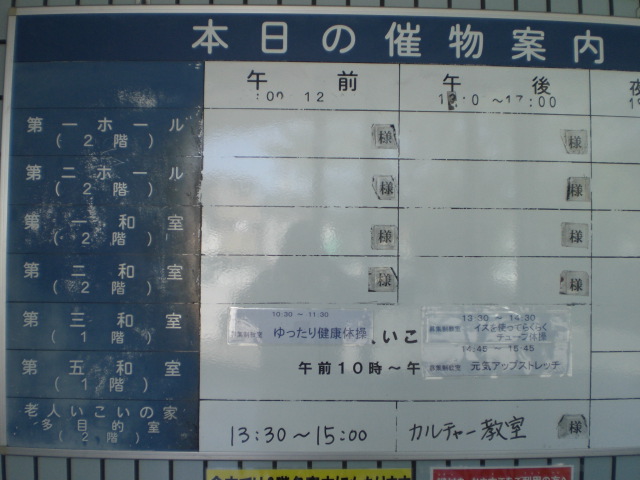 本日の催物案内
午 前
午 後
夜
12
~17:00
第一ホール
(2階)
様
様
第二ホール
(2階)
様
様
第一和室
(2階)
様
様
第二和室
(2階)
様
様
第三和室
(1階)
10:30 ~ 11:30
ゆったり健康体操
いこ
13:30 ~ 14:30
イスを使ってらくらく
チューブ体操
14:45 ~ 15:45
元気アップストレッチ
第五和室
(1階)
午前10時~午
老人いこいの家
多目的室
(2階)
13:30~15:00
カルチャー教室
様